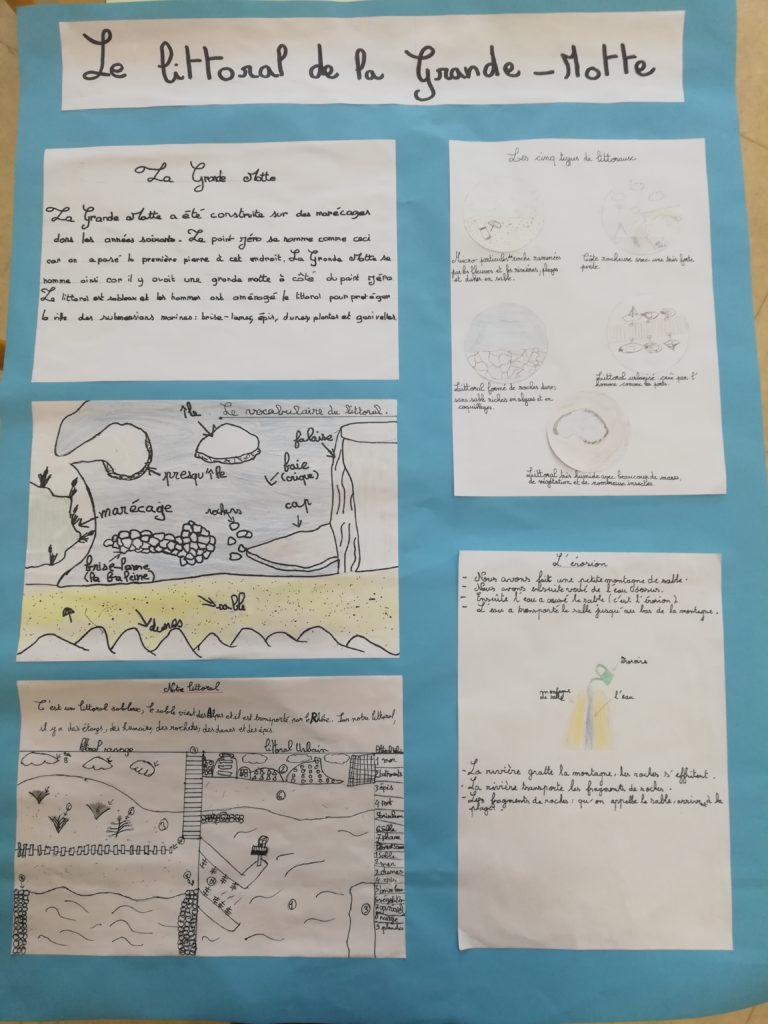 Le littoral de la Grande-Motte
La Grande Motte
La Grande Motte a été construite sur des marécages
dans les années soixante. Le point zéro se nomme comme ceci
car on a posé la première pierre à cet endroit. La Grande Motte se
nomme ainsi car il y avait une grande motte à côté du point zéro.
Le littoral est sableux et les hommes ont aménagé le littoral pour protéger
la ville des submersions marines : brise-lames, épis, dunes, plantes et ganivelles
Le vocabulaire du littoral.
île
falaise
presqu'île
baie
(crique)
marécage
rochers
cap
brise-lame
(la baleine)
sable
dunes
Notre littoral
C'est un littoral sableux, le sable vient des Alpes et il est transporté par le Rhône. Sur notre littoral,
il y a des étangs, des humains, des rochets, des dunes et des épis.
littoral sauvage
littoral Urbain
mer
3 épis
4 port
6 sable
7 phare
1 sable
2 mer
3 dunes
4 epis
Les cinq types de littoraux
Micro particules de roche ramenées
par les fleuves et les rivières, plages
et dunes en sable.
Côte rocheuse avec une très forte
pente.
Littoral formé de roches dures,
sans sable riches en algues et en
coquillages.
Littoral urbanisé créé par l'
homme comme les ports.
Littoral très humide avec beaucoup de mares,
de végétation et de nombreux insectes.
L'érosion
- Nous avons fait une petite montagne de sable.
- Nous avons ensuite versé de l'eau dessus.
- Ensuite l'eau a creusé le sable (c'est l'érosion)
- L'eau a transporté le sable jusqu'au bas de la montagne.
arrosoir
montagne
de sable
l'eau
- La rivière gratte la montagne, les roches s'effritent.
- La rivière transporte les fragments de roches.
- Les fragments de roches, qu'on appelle le sable, arrivent à la
plage.